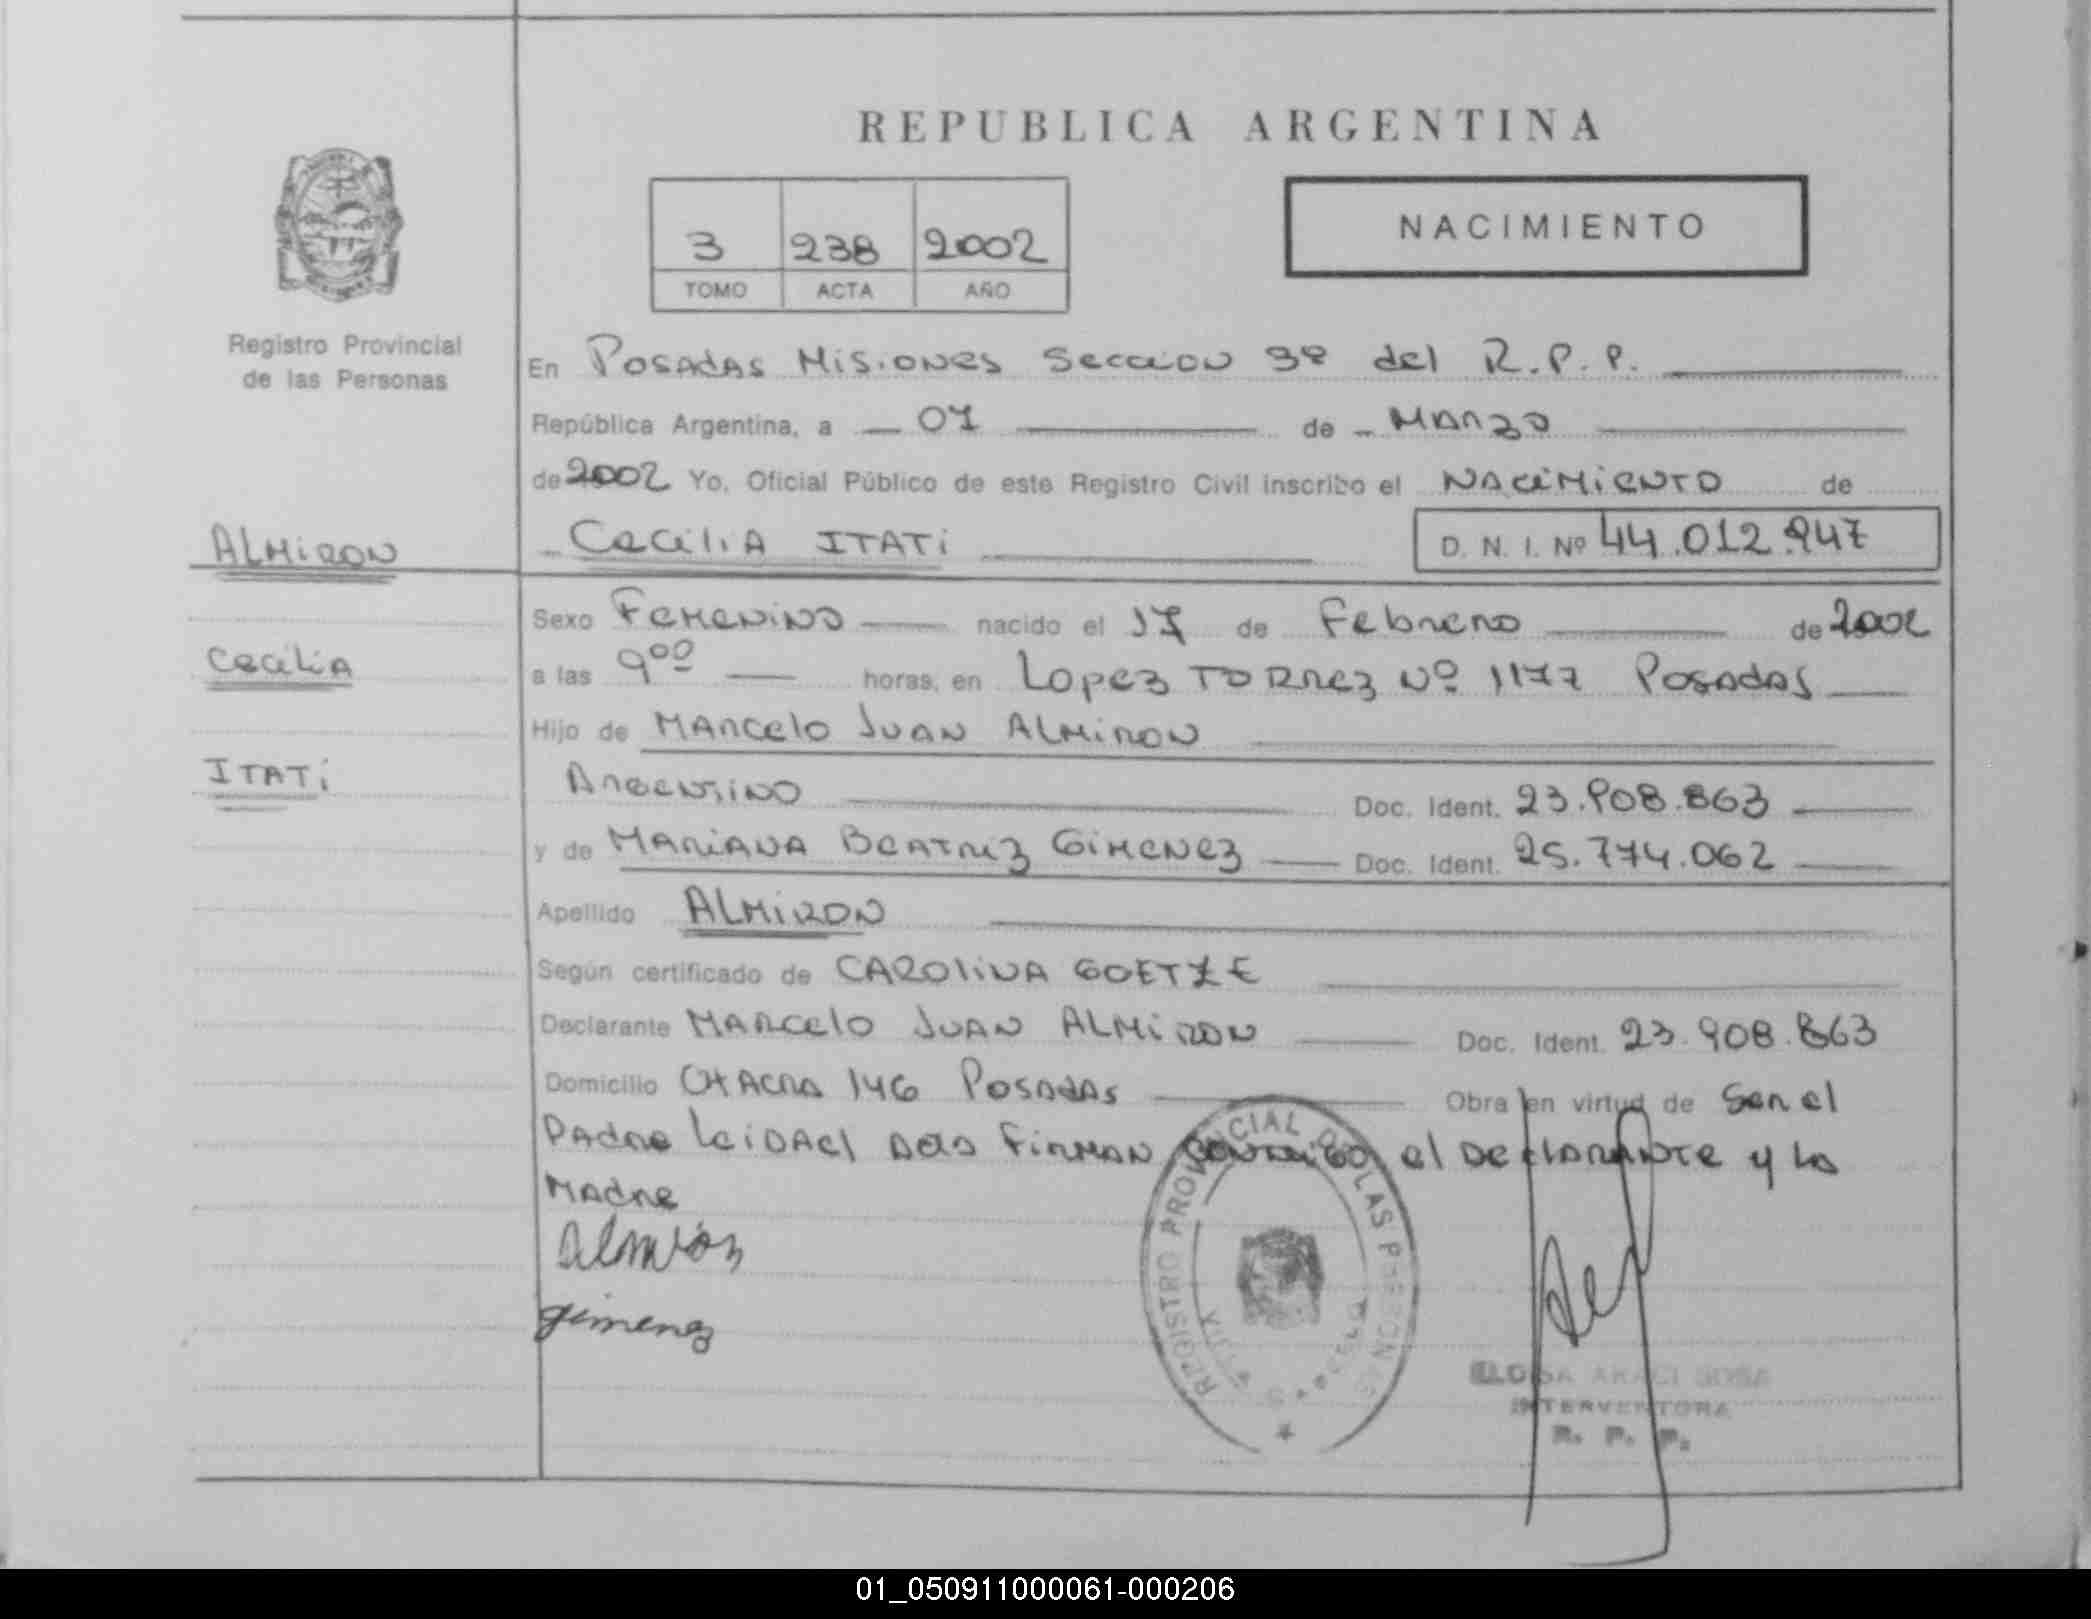 REPUBLICA ARGENTINA
3 238 2002
TOMO ACTA AÑO
NACIMIENTO
Registro Provincial
de las Personas
En Posadas Misiones Seccion 3º del R.P.P.
República Argentina, a 07 de Marzo
de 2002 Yo, Oficial Público de este Registro Civil inscribo el Nacimiento de
Cecilia ITATI D. N. I. Nº 44.012.947
ALMIRON
Cecilia
ITATI
Sexo Femenino nacido el 17 de Febrero de 2002
a las 9⁰⁰ horas, en Lopez Torrez Nº 1177 Posadas
Hijo de Marcelo Juan Almiron
Argentino Doc. Ident. 23.908.863
y de Mariana Beatriz Gimenez Doc. Ident. 25.774.062
Apellido ALMIRON
Según certificado de CAROLINA GOETZE
Declarante Marcelo Juan ALMIRON Doc. Ident. 23.908.863
Domicilio CHACRA 146 Posadas Obra en virtud de Ser el
Padre Leida el Acta Firman Conmigo el Declarante y la
Madre
Almirón
Gimenez
REGISTRO PROVINCIAL DE LAS PERSONAS
INTERVENTORA
R. P. P.
01_050911000061-000206